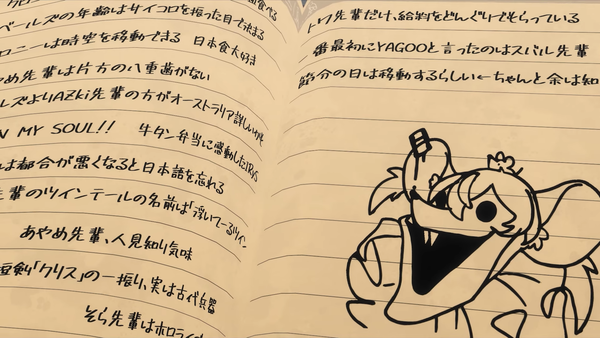 食べる
ベールズの年齢はサイコロを振った目で決まる
ロニーは時空を移動できる 日本食大好き
やめ先輩は片方の八重歯がない
ルズよりAZKi先輩の方がオーストラリア詳しいかも
N MY SOUL!! 牛タン弁当に感動したIRyS
は都合が悪くなると日本語を忘れる
先輩のツインテールの名前は「浮いてーるツイン
あやめ先輩、人見知り気味
短剣「クリス」の一振り、実は古代兵器
そら先輩はホロライ
トワ先輩だけ、給料をどんぐりでもらっている
一番最初にYAGOOと言ったのはスバル先輩
節分の日は移動するらしい←ちゃんと余は知